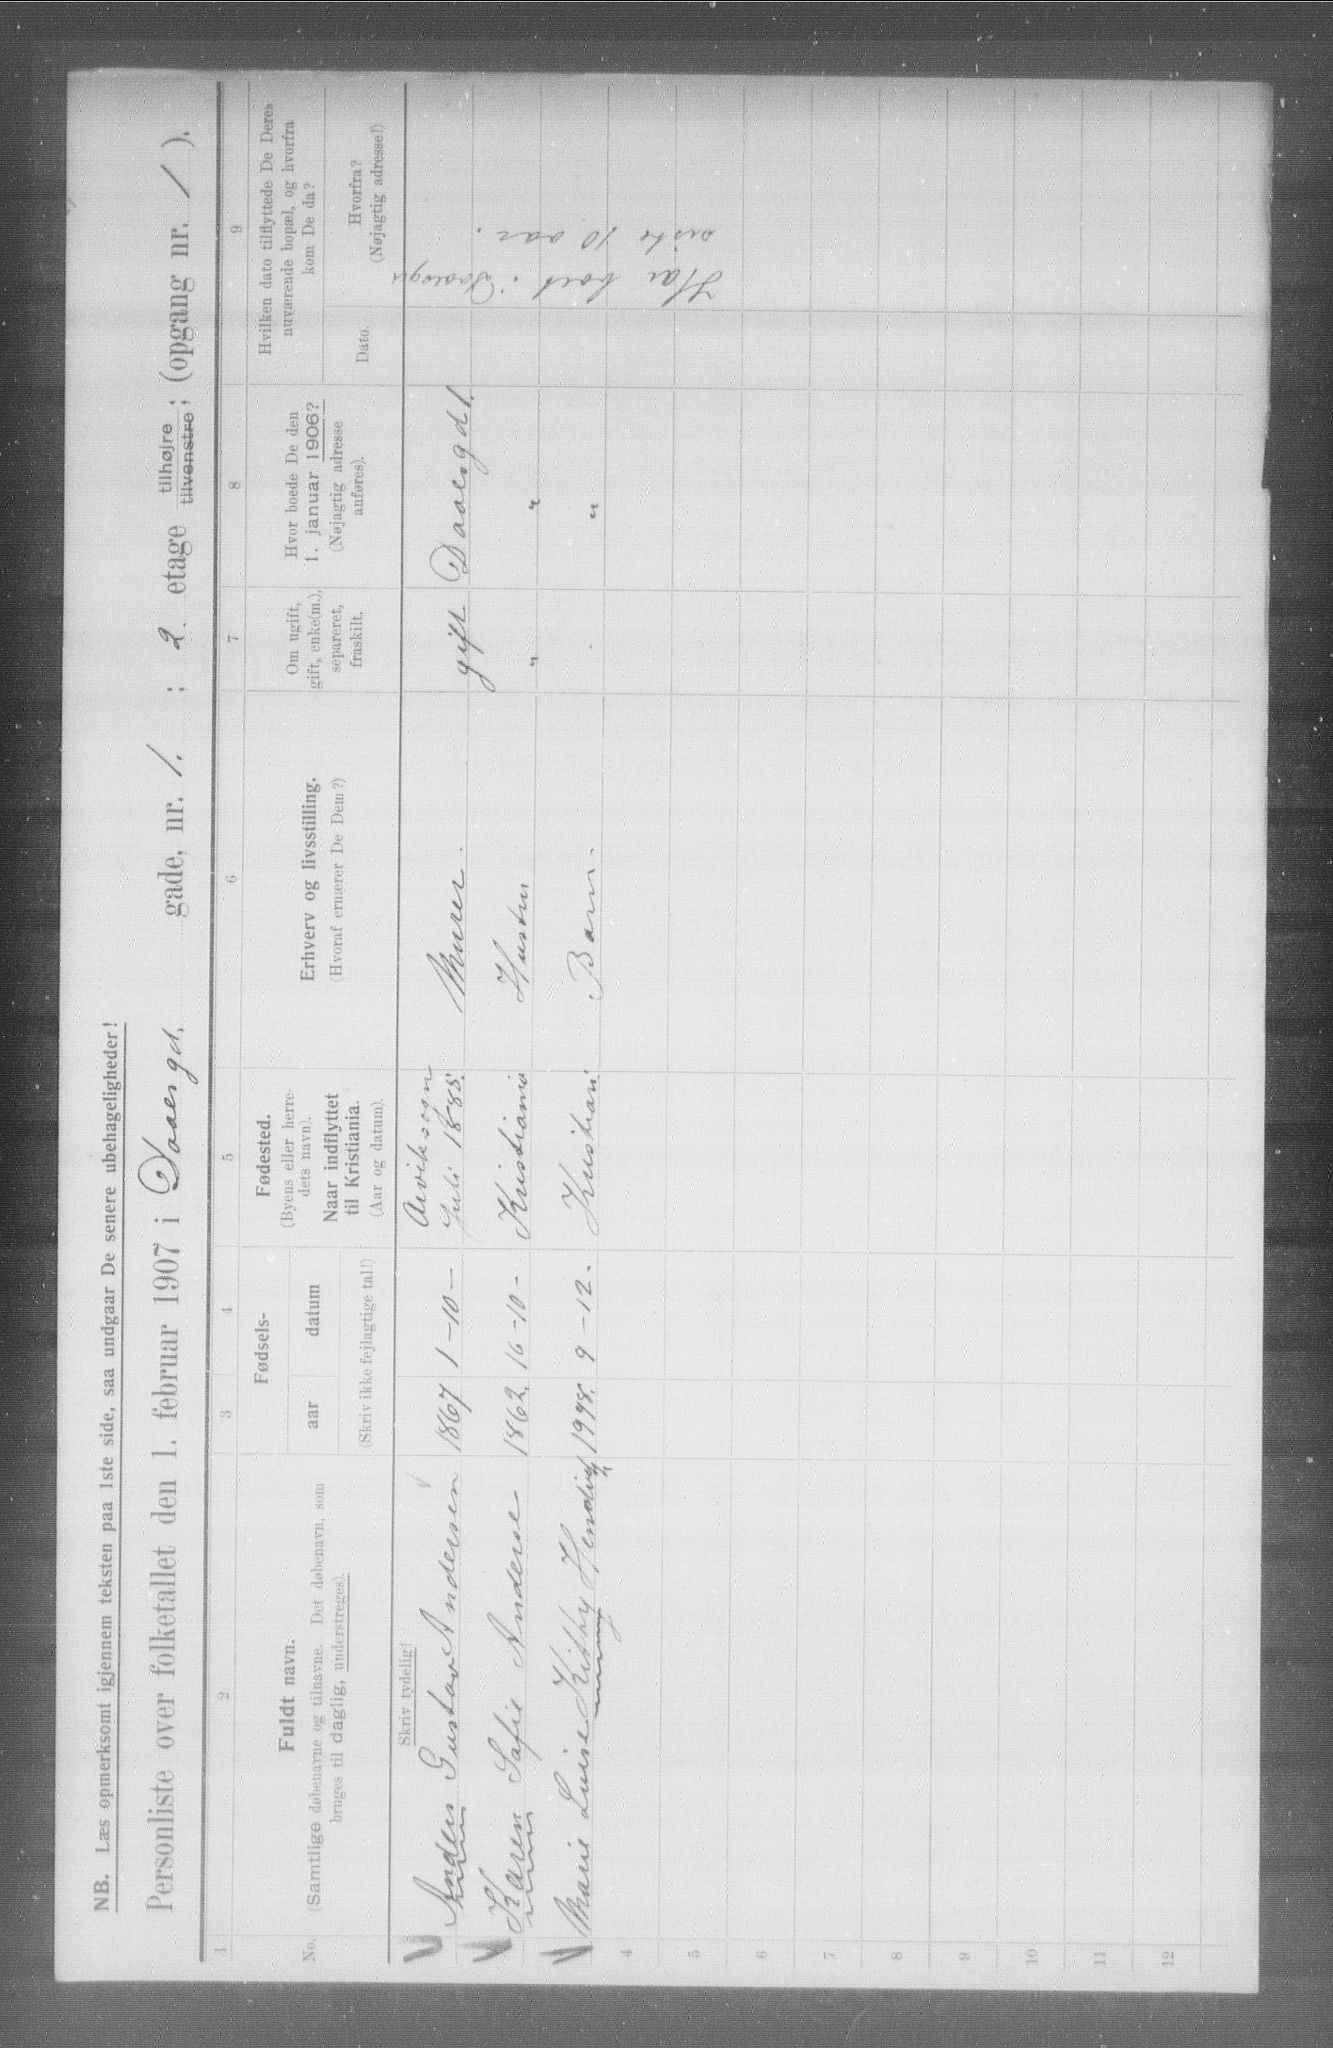 NB. Læs opmerksomt igjennem teksten paa 1ste side, saa undgaar De senere ubehageligheder!
Personliste over folketallet den 1. februar 1907 i Daaesgd. gade, nr. 1. ; 2. etage tilhøjre tilvenstre; (opgang nr. 1 ).
1 2 3 4 5 6 7 8 9
No.
Fuldt navn.
(Samtlige døbenavne og tilnavne. Det døbenavn, som
bruges til daglig, understreges).
Fødsels-
aar datum
(Skriv ikke fejlagtige tal!)
Fødested.
(Byens eller herre-
dets navn).
Naar indflyttet
til Kristiania.
(Aar og datum).
Erhverv og livsstilling.
(Hvoraf ernærer De Dem?)
Om ugift,
gift, enke(m.),
separeret,
fraskilt.
Hvor boede De den
1. januar 1906?
(Nøjagtig adresse
anføres).
Hvilken dato tilflyttede De Deres
nuværende bopæl, og hvorfra
kom De da?
Dato.
Hvorfra?
(Nøjagtig adresse!)
Skriv tydelig!
Anders Gustav Andersen 1867 1-10- Juli 1885. Murer. gift Daaesgd 1.
Karen Sofie Anderse 1862. 16-10- Kristiania Hustru " "
Marie Luise Kitty 9-12. Kristiani Barn. "
Har boet i
sidste 10 aar.
4
5
6
7
8
9
10
11
12